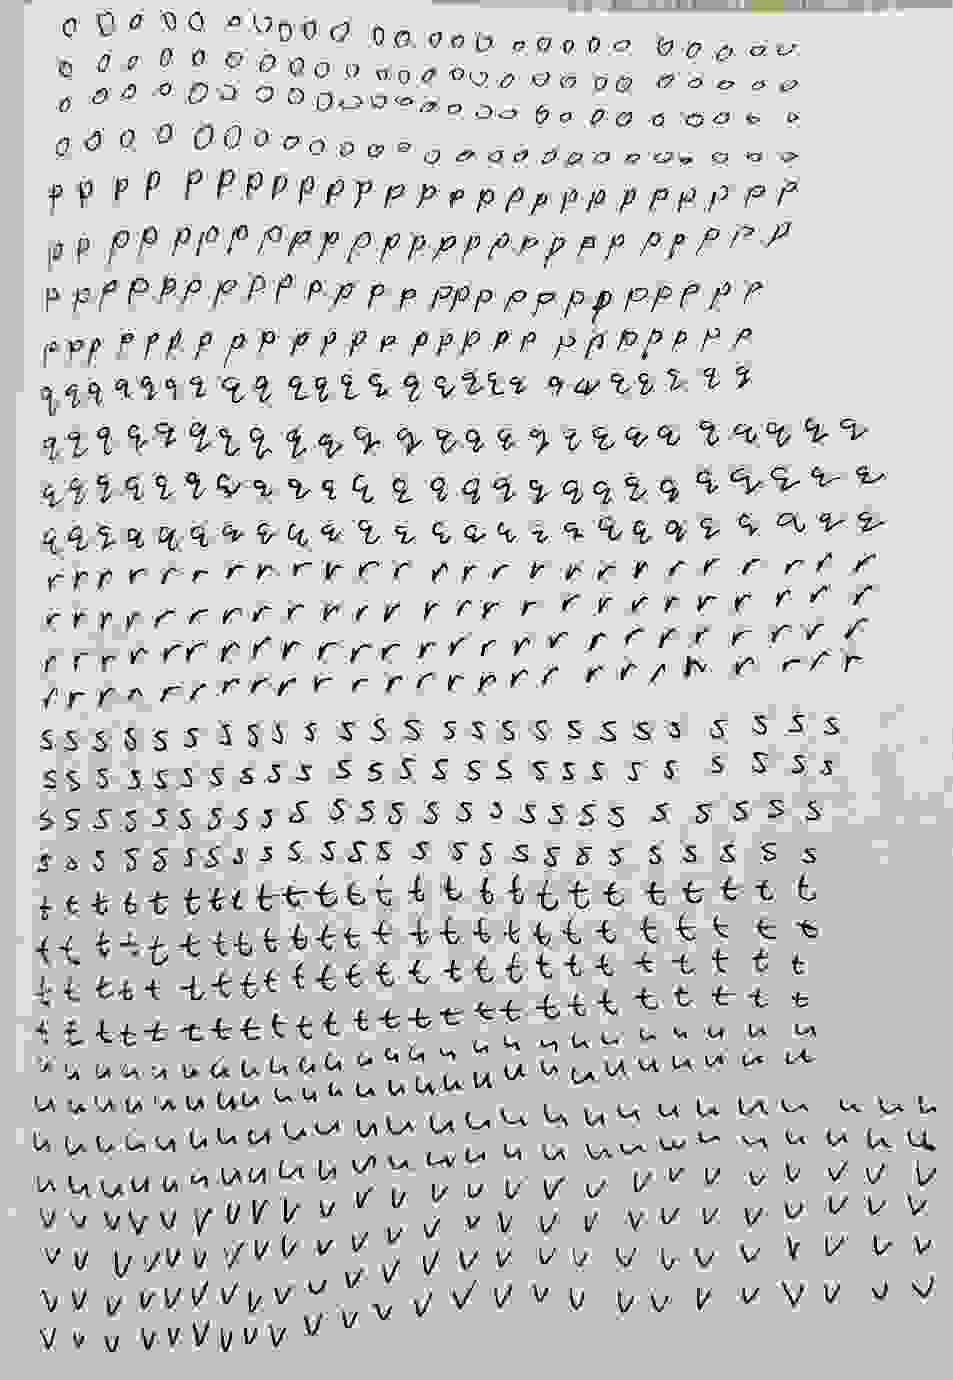 o o o o o o o o o o o o o o o o o o o o o o o o o o
o o o o o o o o o o o o o o o o o o o o o o o o o o
o o o o o o o o o o o o o o o o o o o o o o o o o o
o o o o o o o o o o o o o o o o o o o o o o o o o o
p p p p p p p p p p p p p p p p p p p p p p p p p p
p p p p p p p p p p p p p p p p p p p p p p p p p p
p p p p p p p p p p p p p p p p p p p p p p p p p
p p p p p p p p p p p p p p p p p p p p p p p p p
q q q q q q q q q q q q q q q q q q q q q q q q
q q q q q q q q q q q q q q q q q q q q q q q q q q
q q q q q q q q q q q q q q q q q q q q q q q q q q
q q q q q q q q q q q q q q q q q q q q q q q q q q
r r r r r r r r r r r r r r r r r r r r r r r r r r
r r r r r r r r r r r r r r r r r r r r r r r r r r
r r r r r r r r r r r r r r r r r r r r r r r r r r
r r r r r r r r r r r r r r r r r r r r r r r r r r
s s s s s s s s s s s s s s s s s s s s s s s s s s
s s s s s s s s s s s s s s s s s s s s s s s s s s
s s s s s s s s s s s s s s s s s s s s s s s s s s
s s s s s s s s s s s s s s s s s s s s s s s s s s
t t t t t t t t t t t t t t t t t t t t t t t t t t
t t t t t t t t t t t t t t t t t t t t t t t t t t
t t t t t t t t t t t t t t t t t t t t t t t t t t
t t t t t t t t t t t t t t t t t t t t t t t t t t
u u u u u u u u u u u u u u u u u u u u u u u u u u
u u u u u u u u u u u u u u u u u u u u u u u u u u
u u u u u u u u u u u u u u u u u u u u u u u u u u
u u u u u u u u u u u u u u u u u u u u u u u u u u
v v v v v v v v v v v v v v v v v v v v v v v v v v
v v v v v v v v v v v v v v v v v v v v v v v v v v
v v v v v v v v v v v v v v v v v v v v v v v v v v
v v v v v v v v v v v v v v v v v v v v v v v v v v